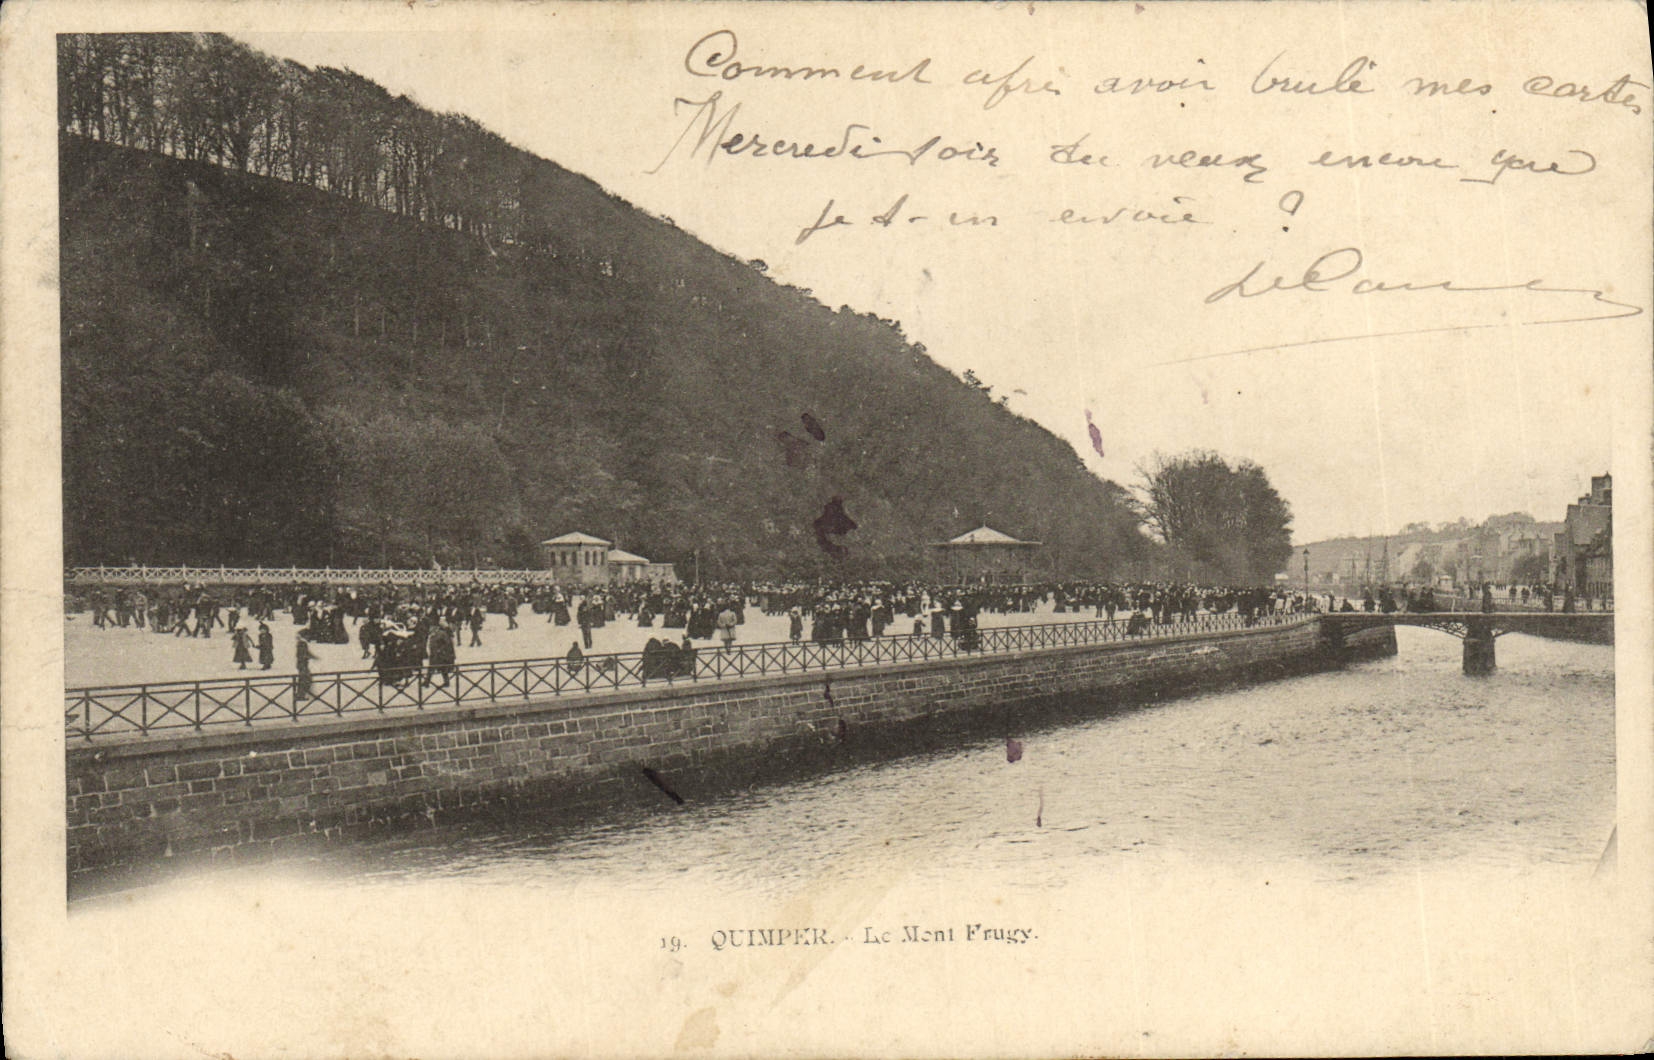 Comment après avoir brulé mes cartes
Mercredi soir tu veux encore que
je t-en envoie ?
19. QUIMPER. - Le Mont Frugy.